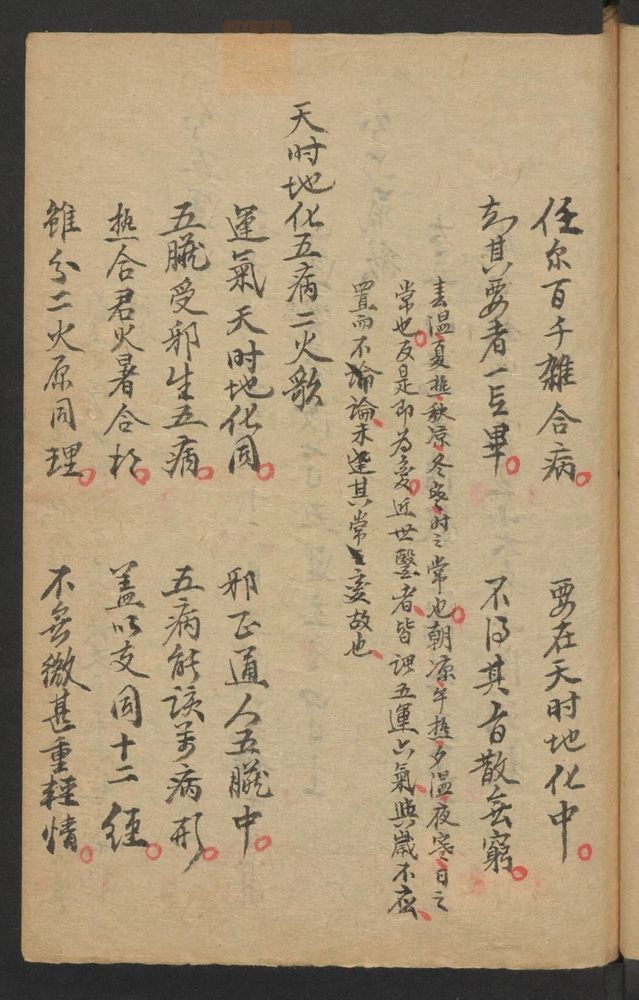 任尔百千雜合病。　要在天时地化中。
知其要者一言畢。　不得其旨散無窮。
春温夏熱秋凉冬寒时之常也。朝凉午熱夕温夜寒日之
常也。反是即為变。近世醫者、皆謂五運六氣、與歲不应、
置而不論、未逹其常变故也、
天时地化五病二火歌
運氣天时地化同。　邪正通人五臟中。
五臟受邪生五病。　五病能该萬病形。
熱合君火暑合相。　盖以支同十二經。
雖分二火原同理。　不無微甚重輕情。